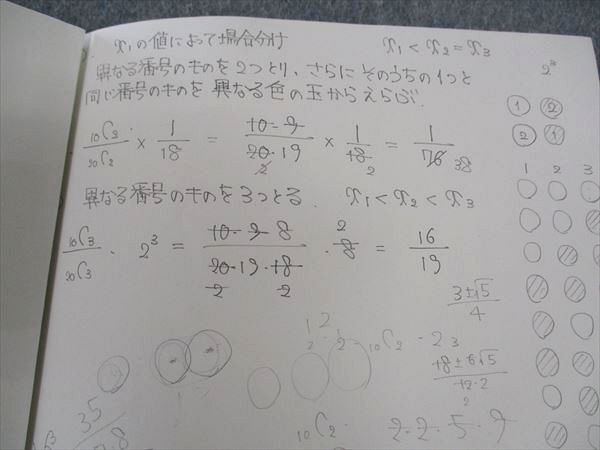 x₁の値によって場合分け x₁ < x₂ = x₃
異なる番号のものを2つとり、さらにそのうちの1つと 2³
同じ番号のものを異なる色の玉からえらぶ.
₁₀C₂/₂₀C₂ × 1/18 = 10·9/20·19 × 1/18 = 1/76 38
2 2
① ②
② ①
異なる番号のものを3つとる. x₁ < x₂ < x₃
1 2 3
₁₀C₃/₂₀C₃ · 2³ = 10·9·8/20·19·18 · 8 = 16/19
2 2 2
3±√5/4
1 2
₁₀C₂ - 2
18±6√5/12·2
2
35
₁₀C₂ · 2·2·5·9